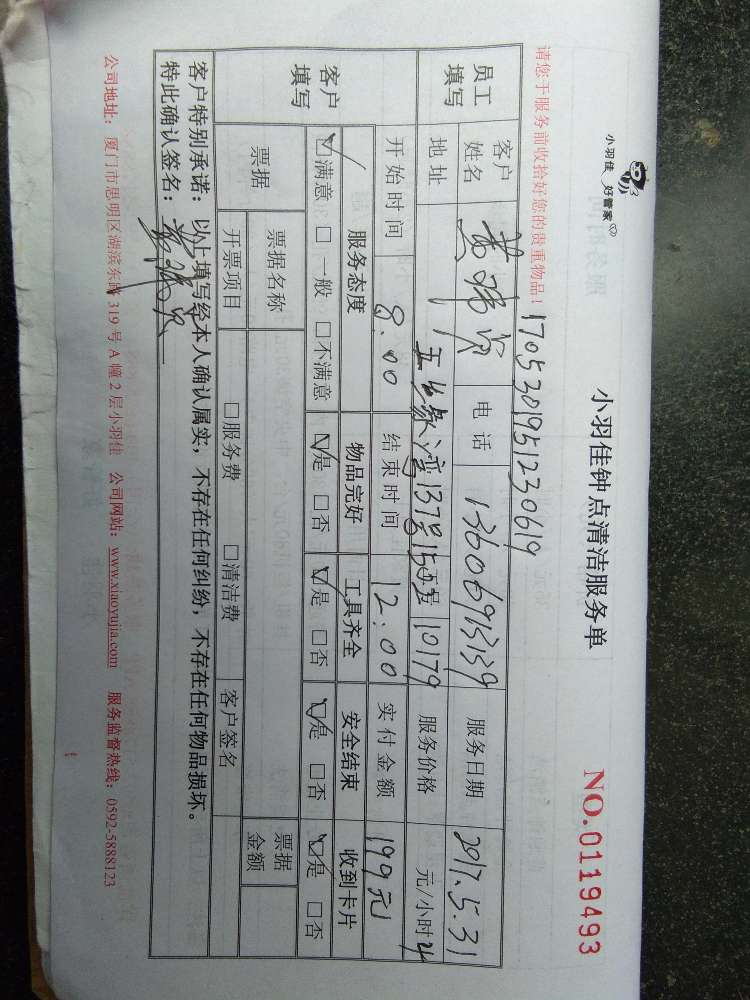 小羽佳 好管家
小羽佳钟点清洁服务单
NO.0119493
请您于服务前收拾好您的贵重物品!
1705301951230619
员工填写
客户姓名
电话 13606913139
服务日期 2017.5.31
地址
五缘湾137号15
10179
服务价格
元/小时 4
开始时间 8.00
结束时间 12:00
实付金额 199元
客户填写
服务态度 物品完好 工具齐全 安全结束 收到卡片
☑满意 □一般 □不满意 ☑是 □否 ☑是 □否 ☑是 □否 ☑是 □否
票据
票据名称
票据金额
开票项目 □服务费 □清洁费 客户签名
客户特别承诺: 以上填写经本人确认属实, 不存在任何纠纷, 不存在任何物品损坏。
特此确认签名:
公司地址: 厦门市思明区湖滨东路 319 号 A 幢 2 层小羽佳 公司网站: www.xiaoyujia.com 服务监督热线: 0592-5888123